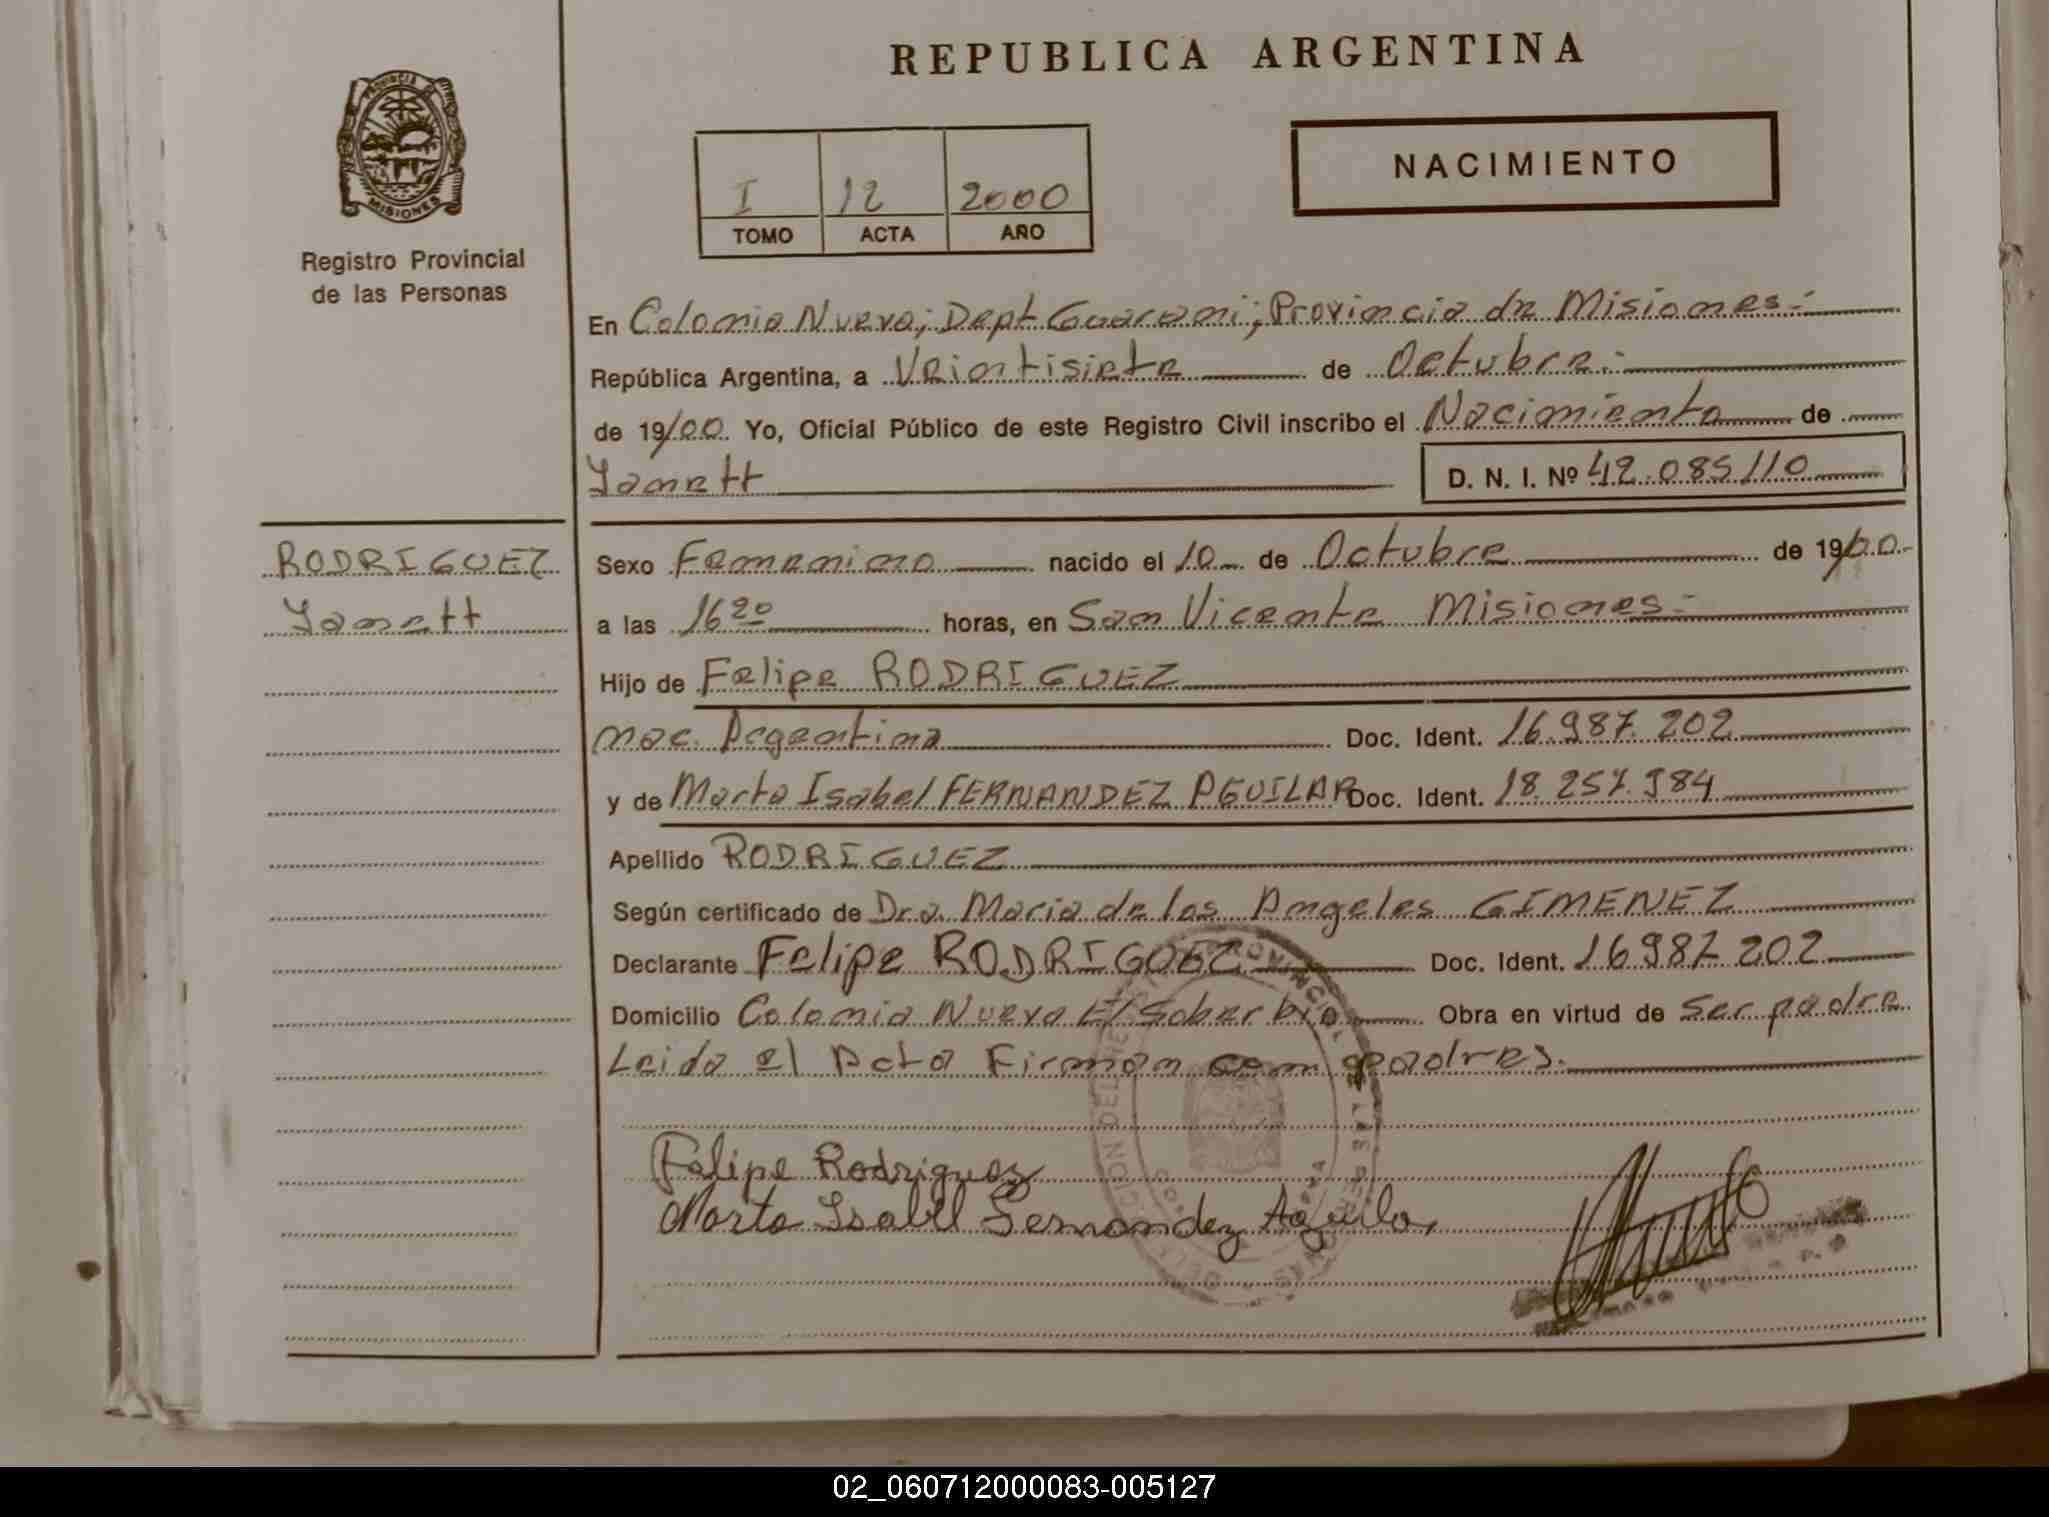 REPUBLICA ARGENTINA
PROVINCIA
MISIONES
Registro Provincial
de las Personas
I 12 2000
TOMO ACTA AÑO
NACIMIENTO
En Colonia Nueva; Dept Guarani; Provincia de Misiones:
República Argentina, a Veintisiete de Octubre:
de 19/00. Yo, Oficial Público de este Registro Civil inscribo el Nacimiento de
Yanett
D. N. I. Nº 42.085110
RODRIGUEZ
Yanett
Sexo Femenino nacido el 10 de Octubre de 19/00
a las 16 20 horas, en San Vicente Misiones
Hijo de Felipe RODRIGUEZ
nac. Argentina Doc. Ident. 16.987.202
y de Marta Isabel FERNANDEZ AGUILAR Doc. Ident. 18.257.984
Apellido RODRIGUEZ
Según certificado de Dra. Maria de los Angeles GIMENEZ
Declarante Felipe RODRIGUEZ Doc. Ident. 16987202
Domicilio Colonia Nueva El Soberbio Obra en virtud de ser padre
Leida el Acta Firman com padres.
Felipe Rodriguez
Marta Isabel Fernandez Aguilar
02_060712000083-005127